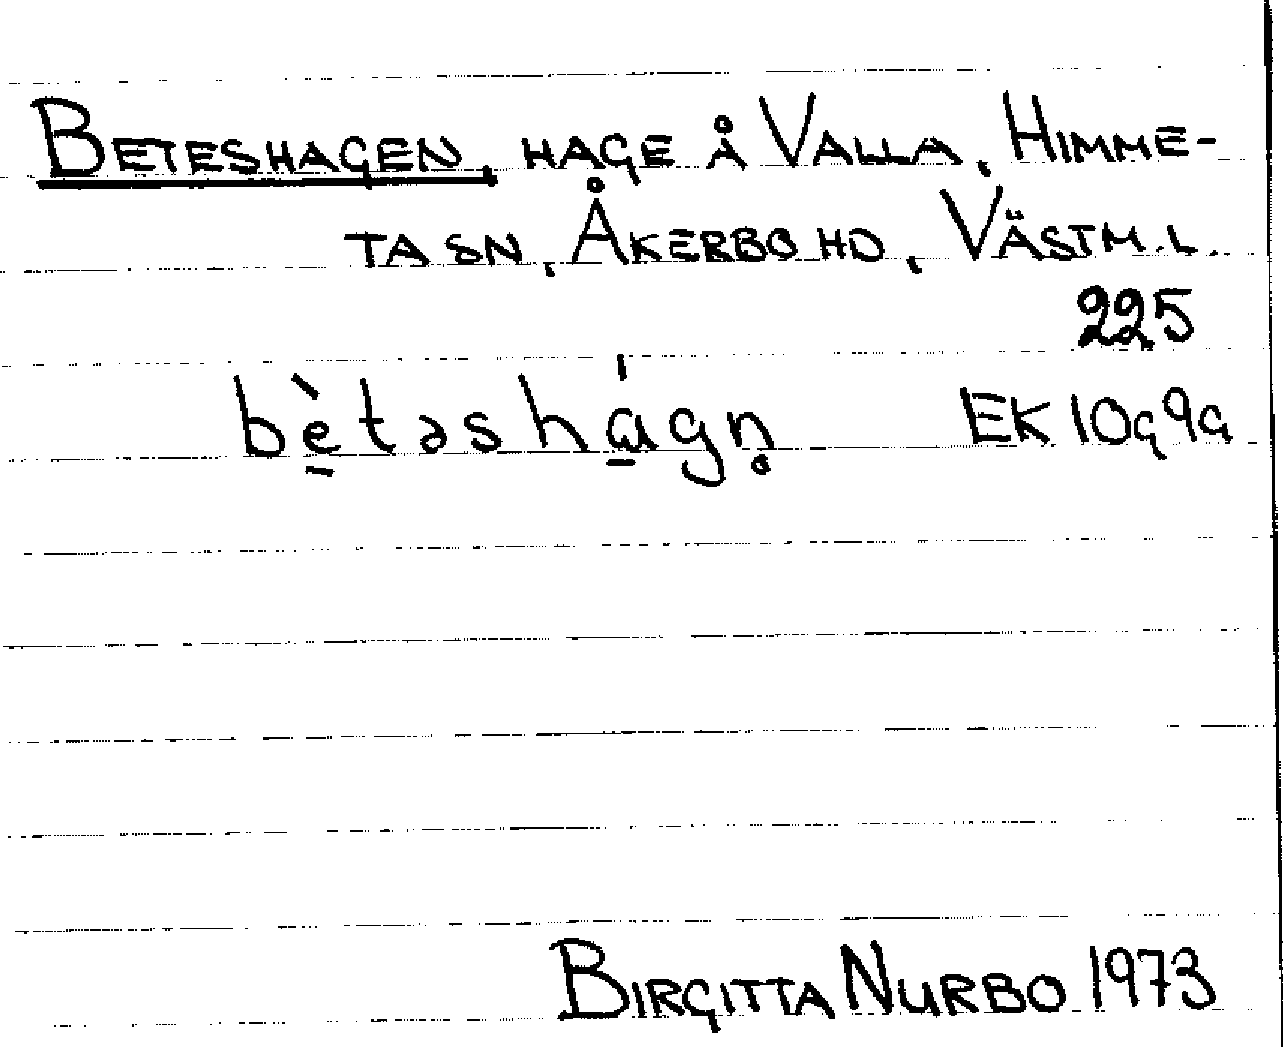 BETESHAGEN, HAGE Å VALLA, HIMME-
TA SN, ÅKERBO HD, VÄSTM.L.
225
bè̱təshá̱gn̥ EK 10g 9a
BIRGITTA NURBO 1973